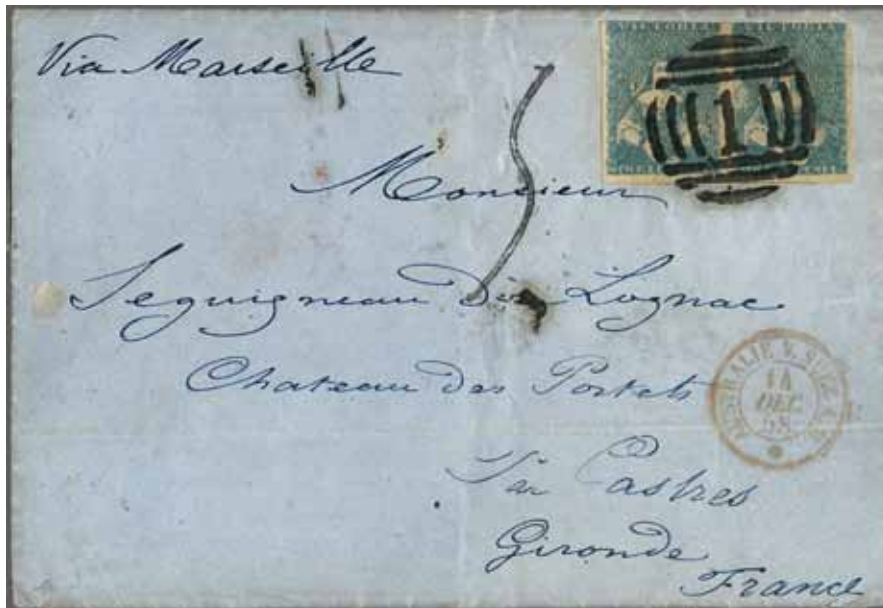 Via Marseille
VICTORIA VICTORIA
1 V
5
Monsieur
Seguigneau de Lognac
Chateau des Portets
AUSTRALIE V. SUEZ
14
DEC
58
Par Castres
Gironde
France